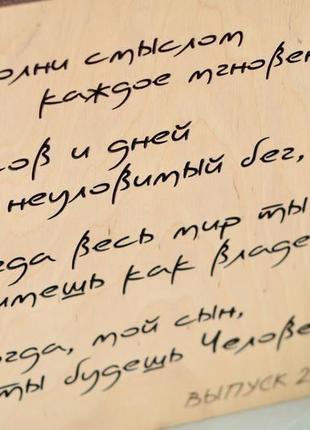 олни смыслом
каждое мгновен
сов и дней
неуловимый бег,
гда весь мир ты
имешь как владе
огда, мой сын,
ты будешь Челове
ВЫПУСК 2